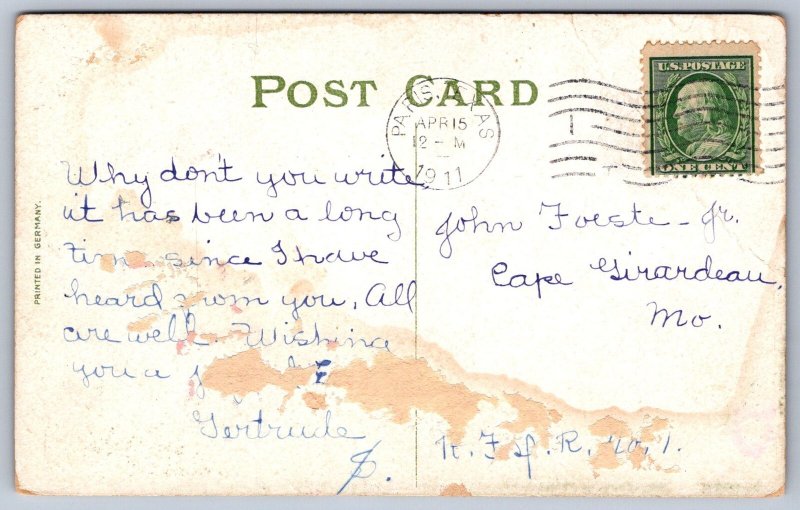 POST CARD
PARIS TEXAS
APR 15
12 - M
1911
U.S. POSTAGE
ONE CENT
PRINTED IN GERMANY.
Why don't you write
it has been a long
time since I have
heard from you. All
are well. Wishing
you a
Gertrude
John Foeste - Jr.
Cape Girardeau,
Mo.
R. no. 1.